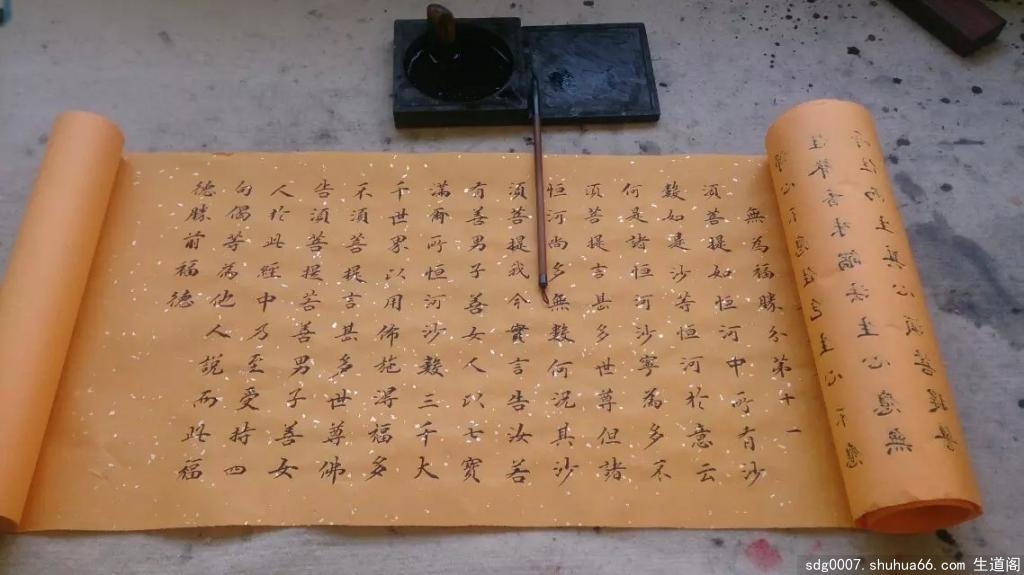 所住而生其心須菩提譬
住聲香味觸法生心應無
淨心不應住色生心不應
無為福勝分第十一
須菩提如恒河中所有沙
數如是沙等恒河於意云
何是諸恒河沙寧為多不
須菩提言甚多世尊但諸
恒河尚多無數何況其沙
須菩提我今實言告汝若
有善男子善女人以七寶
滿爾所恒河沙數三千大
千世界以用佈施得福多
不須菩提言甚多世尊佛
告須菩提若善男子善女
人於此經中乃至受持四
句偈等為他人說而此福
德勝前福德
sdg0007.shuhua66.com 生道阁